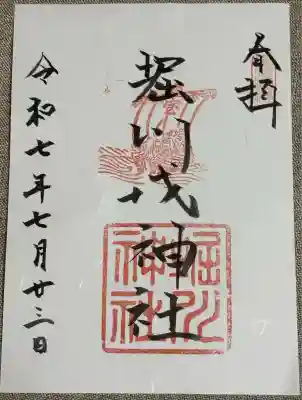 奉拝
堀川戎神社
令和七年七月廿三日
堀川戎神社